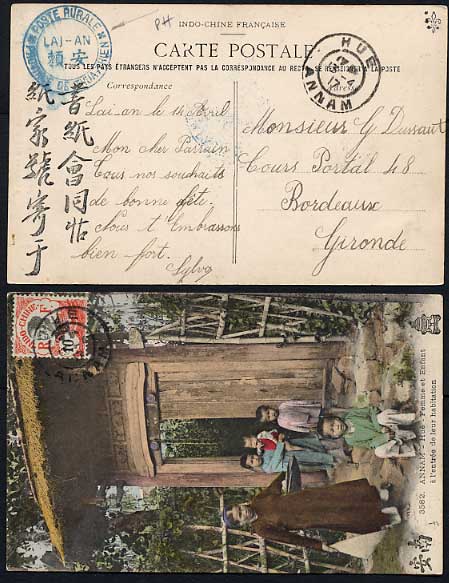 INDO-CHINE FRANÇAISE
CARTE POSTALE
TOUS LES PAYS ÉTRANGERS N'ACCEPTENT PAS LA CORRESPONDANCE AU RECTO SE RENSEIGNER À LA POSTE
PH
POSTE RURALE
LAI-AN
安賴
HUE
ANNAM
Correspondance
Adresse
Lai-an le 14 Avril
Mon cher Parrain
Tous nos souhaits
de bonne fête.
Nous t'Embrassons
bien fort.
Sylvg
Monsieur G Dussaut
Cours Portal 48
Bordeaux
Gironde
紙會同
紙家號寄于
INDO-CHINE
RF
10
3562. ANNAM - Hué - Femme et Enfant
à l'entrée de leur habitation
南安